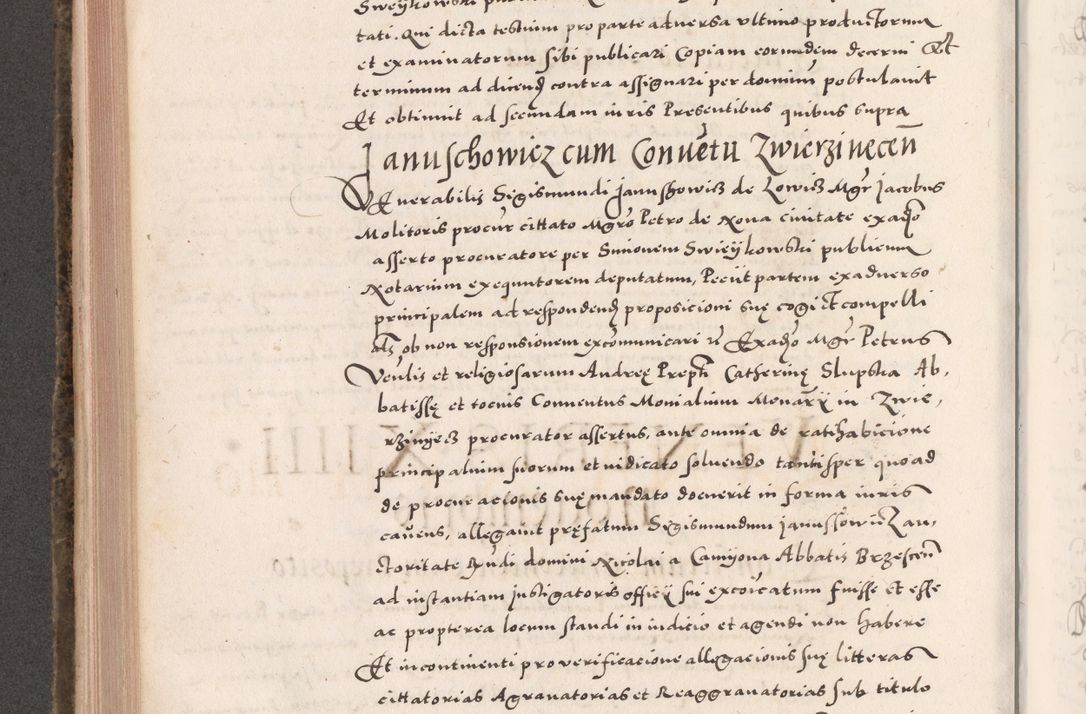 tati. Qui dicta testium pro parte adversa ultimo productorum
et examinatorum sibi publicari Copiam eorumdem decerni Et
terminum ad dicend contra assignari per dominum postulavit
Et obtinuit ad secundam iuris Presentibus quibus supra
Januschowicz cum Conventu Zwierzinęcen
Venerabilis Sigismundi Janushowicz de Lowicz Mgr Jacobus
Molitoris procur cittato Mgro Petro de Nova civitate exadverso
asserto procuratore per Simonem Swieykowski publicum
Notarium exequutorem deputatum, Peciit partem exadverso
principalem ad respondend proposicioni suę cogi Et compelli
als ob non responsionem excomunicari Et Exadverso Mgr Petrus
Venlis et religiosarum Andreę Prepti Catherinę Slupska Ab,
batissę et tocius Conventus Monialium Monarii in Zwie,
rzinyecz procurator assertus, ante omnia de ratihabicione
principalium suorum et iudicato solvendo tantisper quoad
de procuracionis suę mandato docuerit in forma iuris
cavens, allegavit pręfatum Sigismundum Janussowicz au,
ctoritate Rndi domini Nicolai a Camyona Abbatis Brzescen
ad instantiam Justigatoris officij sui excoicatum fuisse et esse
ac propterea locum standi in iudicio et agendi non habere
Et incontinenti pro verificacione allegacionis suę litteras
cittatorias Agravatorias et Reaggravatorias sub titulo